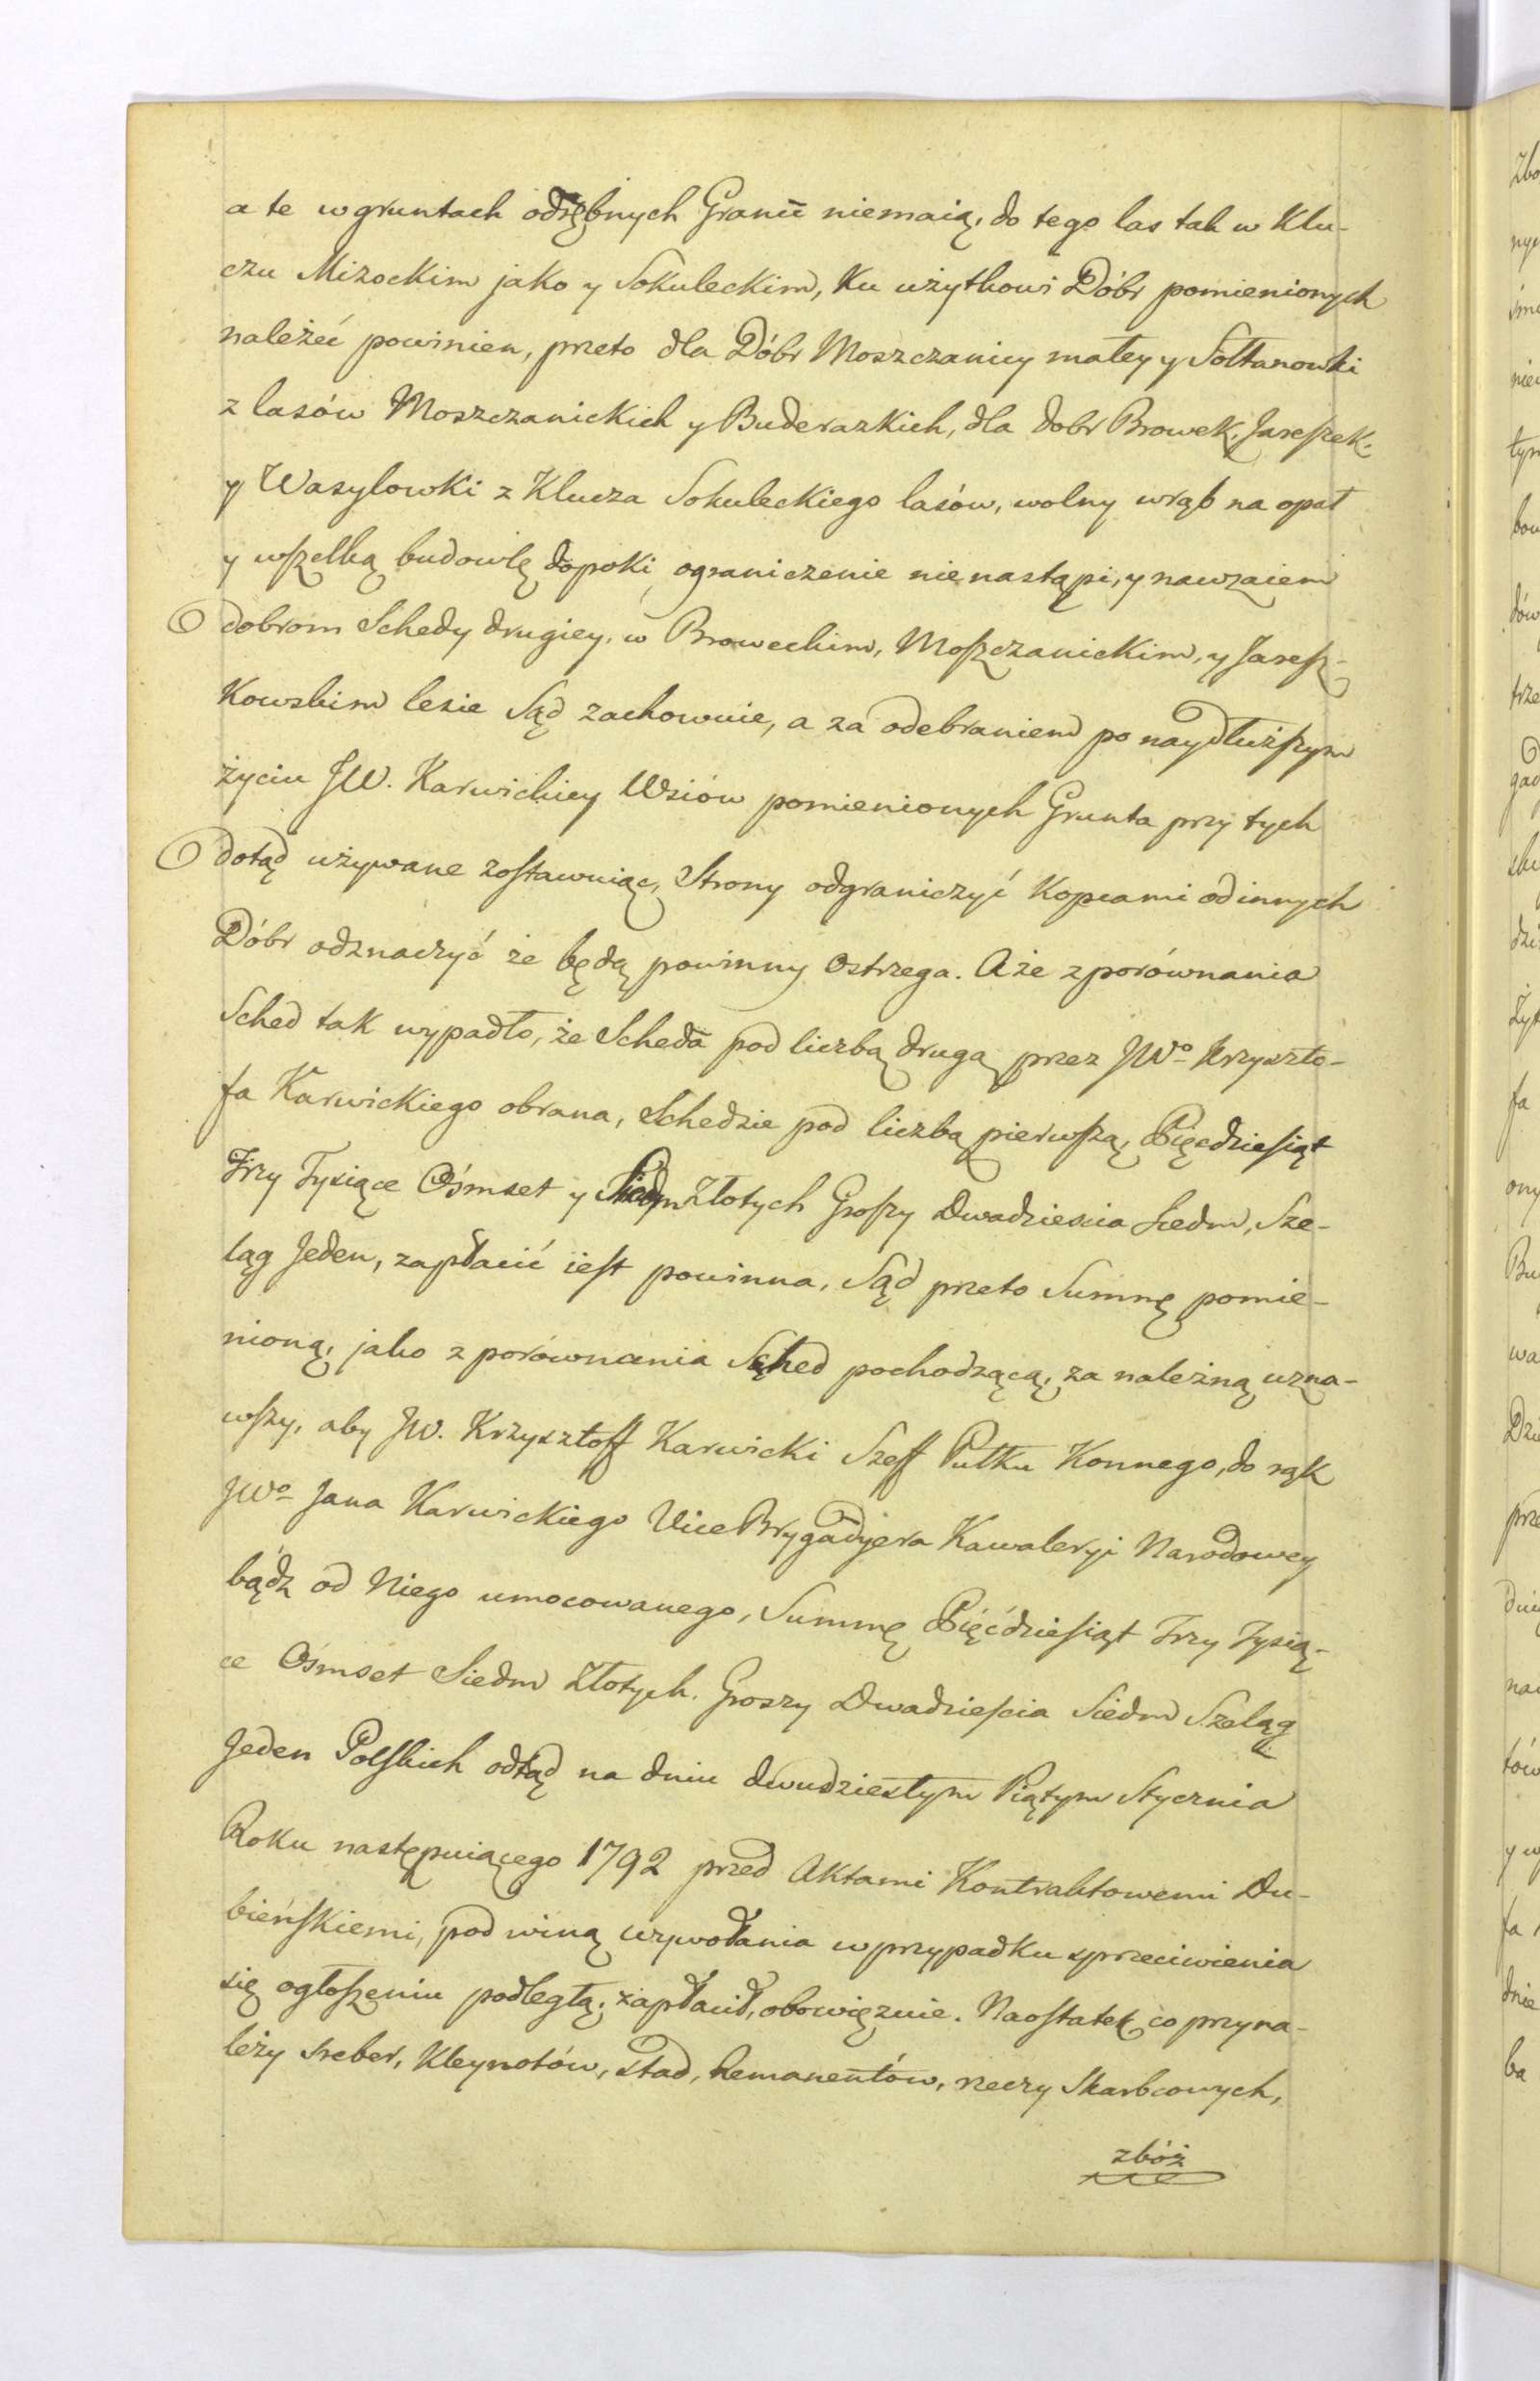 a te w gruntach odrębnych Granic niemaią, do tego las tak w Klu-
czu Mizockim jako y Sokuleckim, Ku użytkowi Dóbr pomienionych
należeć powinien, przeto dla Dóbr Moszczanicy małey y Sołtanowki
z lasów Moszczanickich y Buderazkich, dla dobr Browek, Jareszek
y Wasylowki z Klucza Sokuleckiego lasów, wolny wrąb na opał
y wszelką budowlę dopoki ograniczenie nie nastąpi, y nawzaiem
dobrom Schedy drugiey, w Broweckim, Moszczanickim, y Jaresz-
Kowskim lesie Sąd zachownie, a za odebraniem po naydłuższym
życiu JW. Karwickiey Wsiów pomienionych Grunta przy tych
dotąd używane zostawuiąc, Strony odgraniczyć Kopcami od innych
Dóbr odznaczyć że będą powinny ostrzega. A że z porównania
Sched tak wypadło, że Scheda pod liczbą drugą przez JWo Krzyszto-
fa Karwickiego obrana, Schedzie pod liczbą pierwszą, Pięcdziesiąt
Trzy Tysiące Ośmset y Siedm Złotych Groszy Dwadziescia Siedm, Sze-
ląg Jeden, zapłacić iest powinna, Sąd przeto Summę pomie-
nioną, jako z porównania Sched pochodzącą, za należną uzna-
wszy, aby JW. Krzysztoff Karwicki Szeff Pułku Konnego, do rąk
JWo Jana Karwickiego Vice Brygadyera Kawaleryi Narodowey
bądz od Niego umocowanego, Summę Pięćdziesiąt Trzy Tysią-
ce Ośmset Siedm Złotych. Groszy Dwadziescia Siedm Szeląg
Jeden Polskich odtąd na dniu dwudziestym Piątym Stycznia
Roku następuiącego 1792 przed Aktami Kontraktowemi Du-
bieńskiemi, pod winą wywołania w przypadku sprzeciwienia
się ogłoszeniu podległą, zapłacił, obowięzuie. Naostatek co przyna-
leży sreber, Kleynotów, stad, Remanentów, rzeczy Skarbcowych,
zbóż